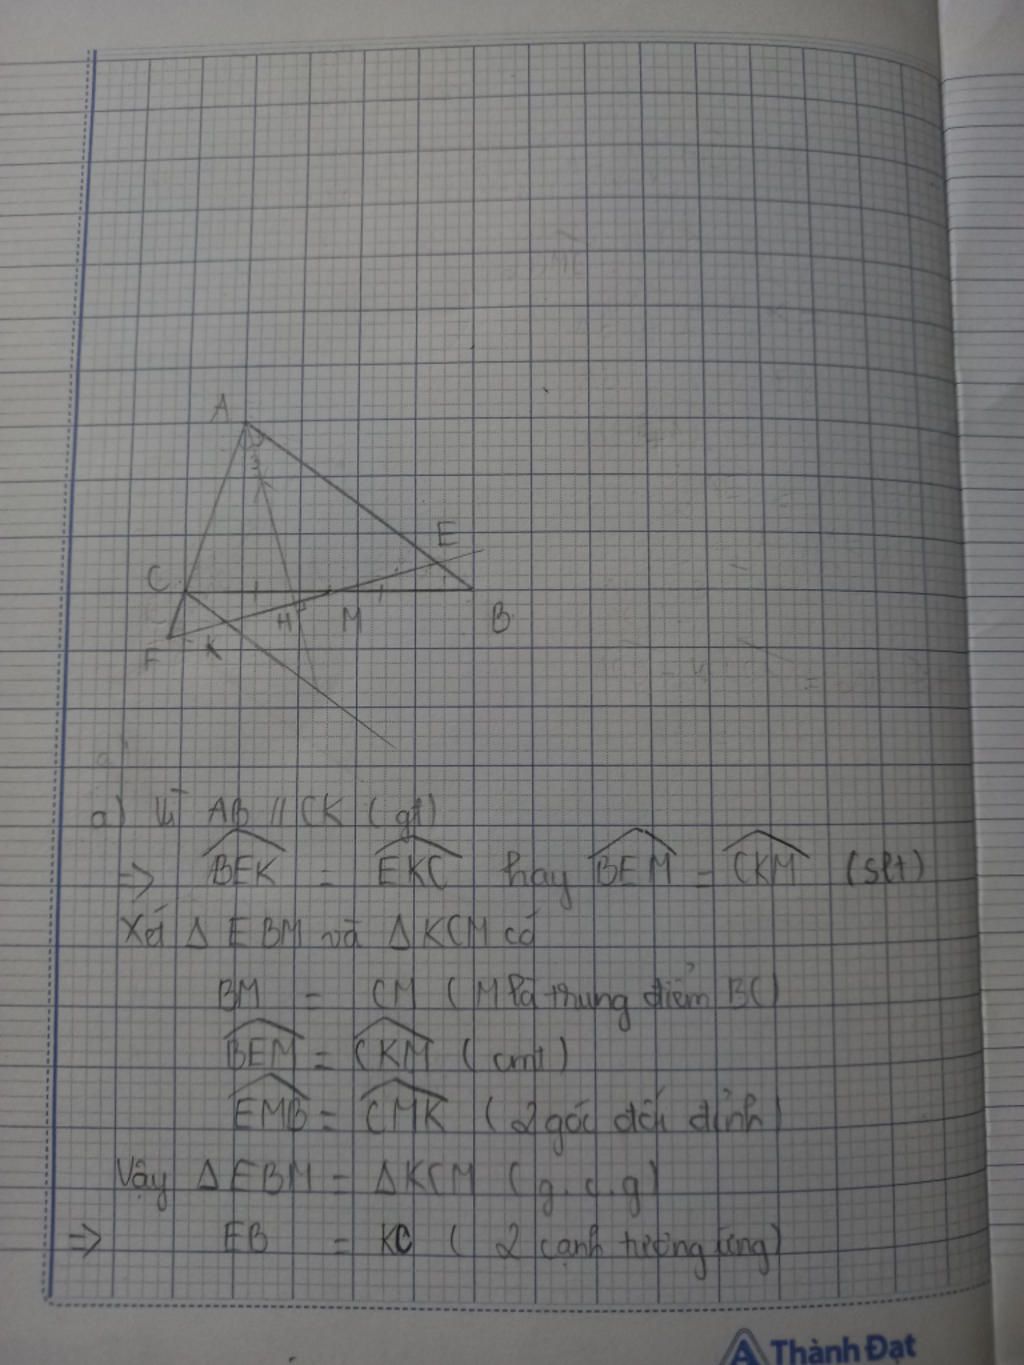 A
E
C
H
M
B
F
K
a) Vì AB // CK (gt)
=> BEK = EKC hay BEM = CKM (slt)
Xét Δ EBM và Δ KCM có
BM = CM (M là trung điểm BC)
BEM = CKM (cmt)
EMB = CMK (2 góc đối đỉnh)
Vậy Δ EBM = Δ KCM (g.c.g)
=> EB = KC (2 cạnh tương ứng)
Thành Đạt